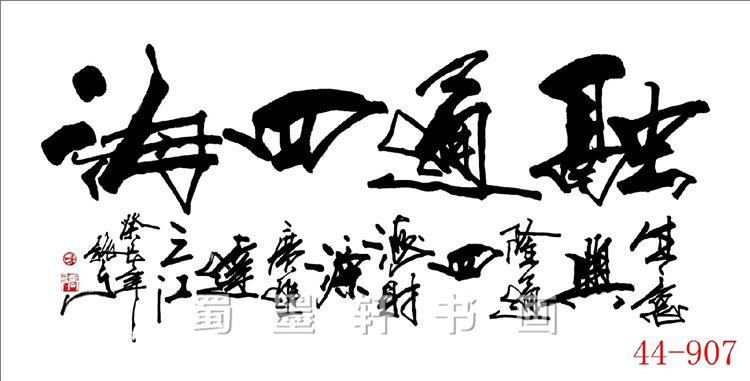 融通四海
生意興隆通四海財源廣進達三江
蜀墨轩书画
44-907